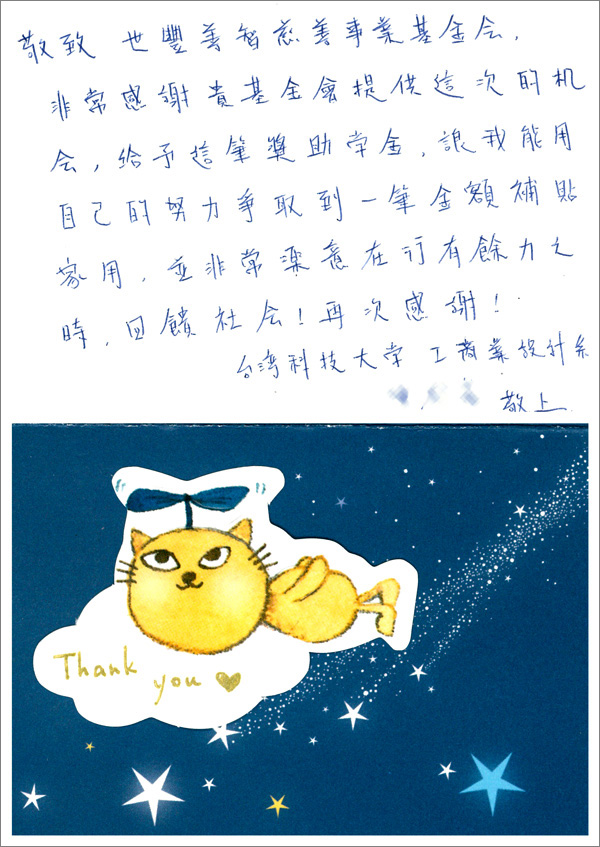 敬致 世豐善智慈善事業基金会,
非常感謝貴基金會提供這次的机
会,給予這筆獎助学金,讓我能用
自己的努力爭取到一筆金額補貼
家用,並非常樂意在行有餘力之
時,回饋社会!再次感謝!
台湾科技大学 工商業設計系
敬上
Thank
you